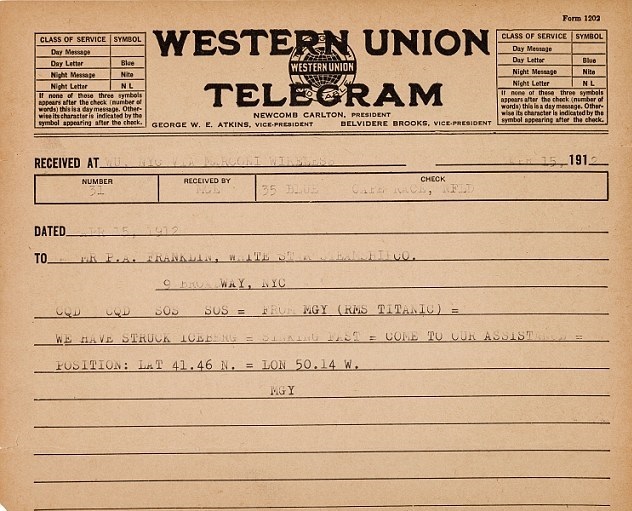 Form 1202
CLASS OF SERVICE SYMBOL
Day Message
Day Letter Blue
Night Message Nite
Night Letter N L
If none of these three symbols
appears after the check (number of
words) this is a day message. Other-
wise its character is indicated by the
symbol appearing after the check.
WESTERN UNION
WESTERN UNION
TELEGRAM
NEWCOMB CARLTON, PRESIDENT
GEORGE W. E. ATKINS, VICE-PRESIDENT BELVIDERE BROOKS, VICE-PRESIDENT
CLASS OF SERVICE SYMBOL
Day Message
Day Letter Blue
Night Message Nite
Night Letter N L
If none of these three symbols
appears after the check (number of
words) this is a day message. Other-
wise its character is indicated by the
symbol appearing after the check.
RECEIVED AT VIA MARCONI WIRELESS 15, 1912
NUMBER RECEIVED BY CHECK
31 MGE 35 BLUE CAPE RACE, NFLD
DATED APR 15, 1912
TO MR P.A. FRANKLIN, WHITE STAR STEAMSHIP CO.
9 BROADWAY, NYC
CQD CQD SOS SOS = FROM MGY (RMS TITANIC) =
WE HAVE STRUCK ICEBERG = SINKING FAST = COME TO OUR ASSISTANCE =
POSITION: LAT 41.46 N. = LON 50.14 W.
MGY